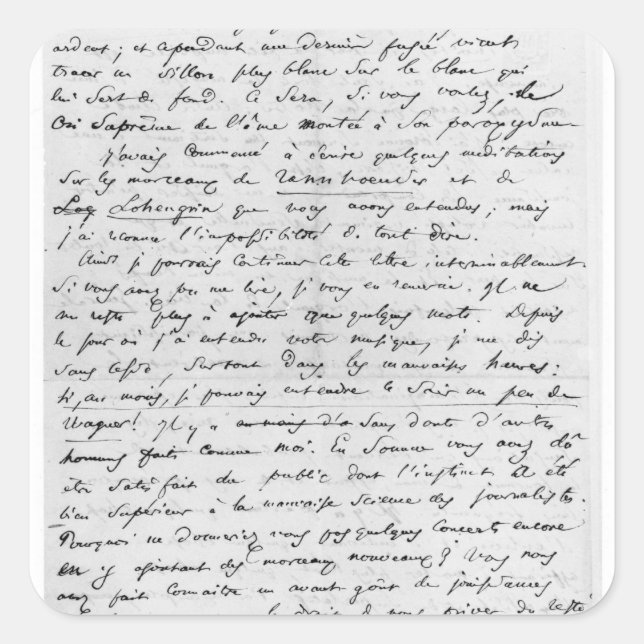 ardent ; et cependant une dernière fusée vient
tracer un sillon plus blanc sur le blanc qui
lui sert de fond. Ce sera, si vous voulez, le
cri suprême de l'âme montée à son paroxysme
J'avais commencé à écrire quelques méditations
sur les morceaux de Tannhoeuser et de
Log Lohengrin que nous avons entendus ; mais
j'ai reconnu l'impossibilité de tout dire.
Ainsi je pourrais continuer cette lettre interminablement.
Si vous avez pu me lire, je vous en remercie. Il ne
me reste plus à ajouter que quelques mots. Depuis
le jour où j'ai entendu votre musique, je me dis
sans cesse, surtout dans les mauvaises heures :
Si, au moins, je pouvais entendre ce soir un peu de
Wagner ! Il y a sans doute d'autres
hommes faits comme moi. En somme vous avez dû
être satisfait du public dont l'instinct a été
bien supérieur à la mauvaise science des journalistes.
Pourquoi ne donneriez vous pas quelques concerts encore
en y ajoutant des morceaux nouveaux ? Vous nous
avez fait connaître un avant-goût de jouissances
le droit de nous priver du reste